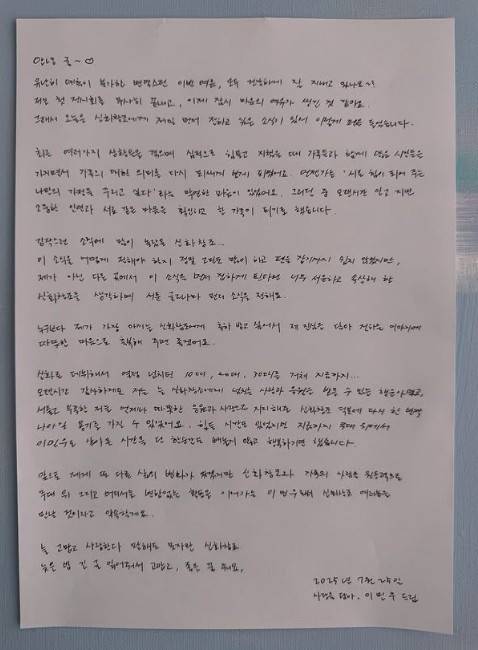 유난히 변덕스런 이번 여름, 모두 건강하게 잘 지내고 있나요~?
저는 첫 전시회를 무사히 끝내고, 이제 잠시 마음의 여유가 생긴 것 같아요.
그래서 오늘은 신화창조에게 제일 먼저 전하고 싶은 소식이 있어 이렇게 펜을 들었습니다.
최근 여러가지 겪으며 심적으로 힘들고 지쳤을 때 가족들과 함께 많은 시간을
가지면서 가족의 대한 의미를 다시 되새기게 되었어요. 언젠가는 '서로 힘이 되어 주는
나만의 가정을 꾸리고 싶다'라는 막연한 마음이 있었어요. 그러던 중 오랜시간 알고 지낸
소중한 인연과 서로 같은 마음을 확인하고 한 가족이 되기로 했습니다.
갑작스런 소식에 많이 놀랐을 신화창조..
이 소식을 어떻게 전해야 할지 정말 고민도 많이 하고 펜을 잡기까지 쉽지 않았지만,
제가 아닌 다른 곳에서 이 소식을 먼저 접하게 된다면 너무 서운하고 속상해 할
신화창조를 생각하며 서툰 글이나마 먼저 소식을 전해요.
누구보다 제가 가장 아끼는 신화창조에게 축하 받고 싶어서 제 진심을 담아 전하는
따뜻한 마음으로 축복해 주면 좋겠어요.
신화로 데뷔해서 열정 넘치던 10대, 20대, 30대를 거쳐 지금까지...
오랜시간 감사하게도 저는 늘 신화창조에게 넘치는 사랑과 응원을 받을 수 있는 행운아였고,
서툴고 부족한 저를 언제나 따뜻한 응원과 사랑으로 지지해준 신화창조 덕분에 다시 한번
나아갈 용기를 가질 수 있었어요. 힘든 시간도 있었지만 지금까지 무대 위에서
이민우로 살아온 시간을 단 한순간도 빼놓지 않고 행복하기만 했습니다.
앞으로 제게 또 다른 삶의 변화가 생겼지만 신화창조와 가족의 사랑을 원동력으로
무대 위 그리고 어디서든 변함없는 활동을 이어가는 이민우로서 신화로 여러분을
만날 것이라고 약속할게요..
늘 고맙고 사랑한다 말해도 모자란 신화창조
늦은 밤 긴 글 읽어주셔서 고맙고, 좋은 꿈 꿔요,
2025년 7월 25일
사랑을 담아. 이민우 드림